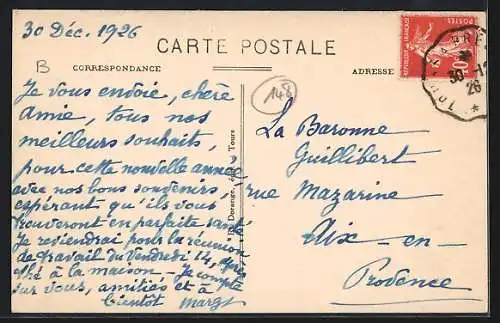 30 Déc. 1926
CARTE POSTALE
B
CORRESPONDANCE
ADRESSE
148
30 -12
26
POSTES
Je vous envoie, chère
amie, tous nos
meilleurs souhaits,
pour cette nouvelle année
avec nos bons souvenirs,
espérant qu'ils vous
trouveront en parfaite santé
Je reviendrai pour la réunion
de travail du Vendredi 14, après
thé à la maison - Je compte
sur vous, amitiés et à
bientôt Margt
Tours
La Baronne
Guillibert
rue Mazarine
Aix - en -
Provence